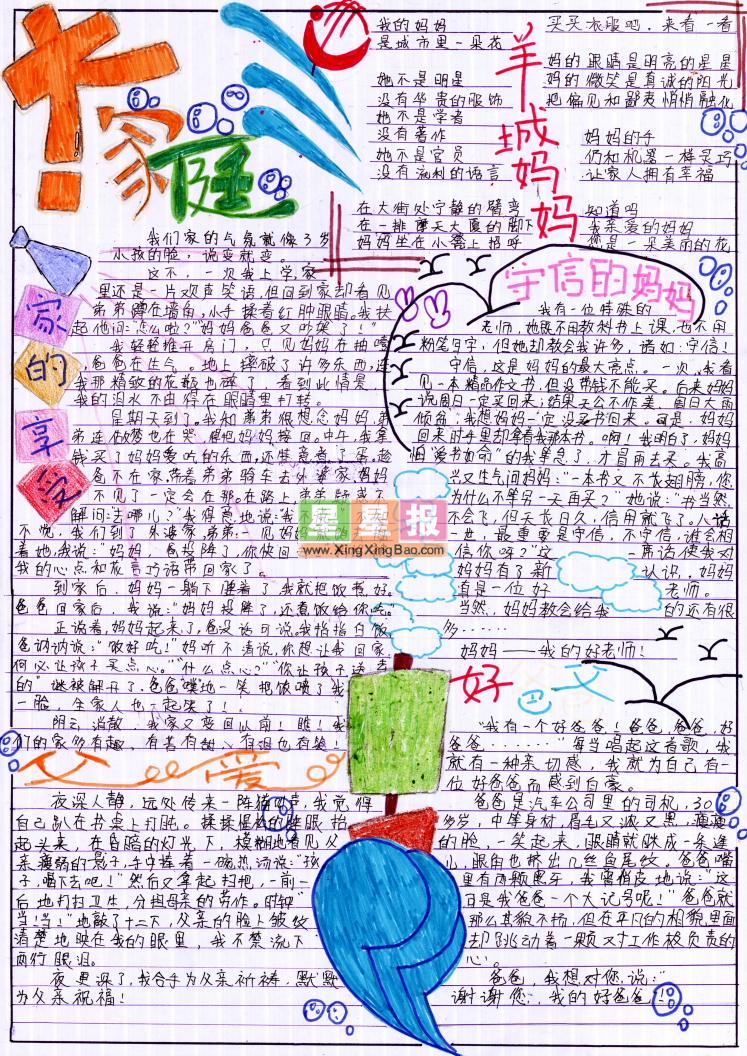 大家庭
我的妈妈
是城市里一朵花
她不是明星
没有华贵的服饰
她不是学者
没有著作
她不是官员
没有流利的语言
在大街处宁静的臂弯
在一排摩天大厦的脚下
妈妈坐在小凳上招呼
羊城妈妈
买买衣服吧，来看一看
妈的眼睛是明亮的星星
妈的微笑是真诚的阳光
把偏见和鄙夷悄悄融化
妈妈的手
仍和机器一样灵巧
让家人拥有幸福
知道吗
我亲爱的妈妈
您是一朵美丽的花
家的享受
我们家的气氛就像3岁
小孩的脸，说变就变。
这不，一次我上学，家
里还是一片欢声笑语，但回到家却看见
弟弟蹲在墙角，小手揉着红肿眼睛。我扶
起他问：“怎么啦？”“妈妈爸爸又吵架了！”
我轻轻推开房门，只见妈妈在抽噎
，爸爸在生气。地上摔破了许多东西，连
我那精致的花瓶也碎了，看到此情景，
我的泪水不由得在眼睛里打转。
星期天到了。我和弟弟很想念妈妈，弟
弟连做梦也在哭
买了妈妈爱吃的东西
爸不在家，带着弟弟骑车去外婆家，妈妈
不见了一定会在那。在路上
解问：“去哪儿？”我得意地说：
不觉，我们到了外婆家，弟弟一见妈妈
着她，我说：“妈妈，爸投降了，你快回
我的心点和花言巧语带回家了。
到家后，妈妈一躺下睡着了，我就把饭煮好。
爸爸回家后，我说：“妈妈投降了，还煮饭给你吃。”
正说着，妈妈起来了，爸没话可说，我指指白饭
爸讷讷说：“做好吃！”妈听不清说，你想让我回家，
何必让孩子买点心。”“什么点心？”“你让孩子送去
的”谜被解开了，爸爸“噗”地一笑把饭喷了我
一脸，全家人也一起笑了！
阴云消散，我家又变回从前！瞧！我
们的家多有趣，有苦有甜，有泪也有笑！
守信的妈妈
我有一位特殊的
老师，她既不用教科书上课，也不用
粉笔写字，但她却教会我许多，诸如：守信！
守信，这是妈妈的最大亮点。一次，我看
见一本精品作文书，但没带钱不能买。后来妈妈
说周日一定买回来；结果天公不作美，周日大雨
倾盆，我想妈妈一定没买书回来。可是，妈妈
回来时手里却拿着我那本书。啊！我明白了，妈妈
怕“爱书如命”的我着急了，才冒雨去买。我高
兴又生气问妈妈：“一本书又不长翅膀，您
为什么不等另一天再买？”她说：“书当然
不会飞，但天长日久，信用就飞了。人活
一世，最重要是守信，不守信，谁会相
信你呀？”这一席话使我对
妈妈有了新认识，妈妈
真是一位好老师。
当然，妈妈教会给我的还有很
多……
妈妈——我的好老师！
父爱
夜深人静，远处传来一阵猫叫声，我觉得
自己趴在书桌上打盹。揉揉惺忪的睡眼抬
起头来，在昏暗的灯光下，模糊地看见父
亲瘦弱的影子，手中捧着一碗热汤说：“孩
子，喝下去吧！”然后又拿起扫把，一前一
后地打扫卫生，分担母亲的劳作。时钟“
当！当！”地敲了十二下，父亲的脸上皱纹
清楚地映在我的眼里，我不禁流下
两行眼泪。
夜更深了，我合手为父亲祈祷，默默
为父亲祝福！
好父
“我有一个好爸爸！爸爸，爸爸，好
爸爸………”每当唱起这首歌，我
就有一种亲切感，我就为自己有一
位好爸爸而感到自豪。
爸爸是汽车公司里的司机，30
多岁，中等身材，眉毛又浓又黑，瘦瘦
的脸，一笑起来，眼睛就眯成一条缝
儿，眼角也挤出几丝鱼尾纹。爸爸嘴
里有两颗黑牙，我曾俏皮地说：“这
可是我爸爸一个大记号呢！”爸爸就
那么其貌不扬，但在平凡的相貌里面
却跳动着一颗对工作极负责的
心。
爸爸，我想对您说：“
谢谢您，我的好爸爸！”
星星报
www.XingXingBao.com